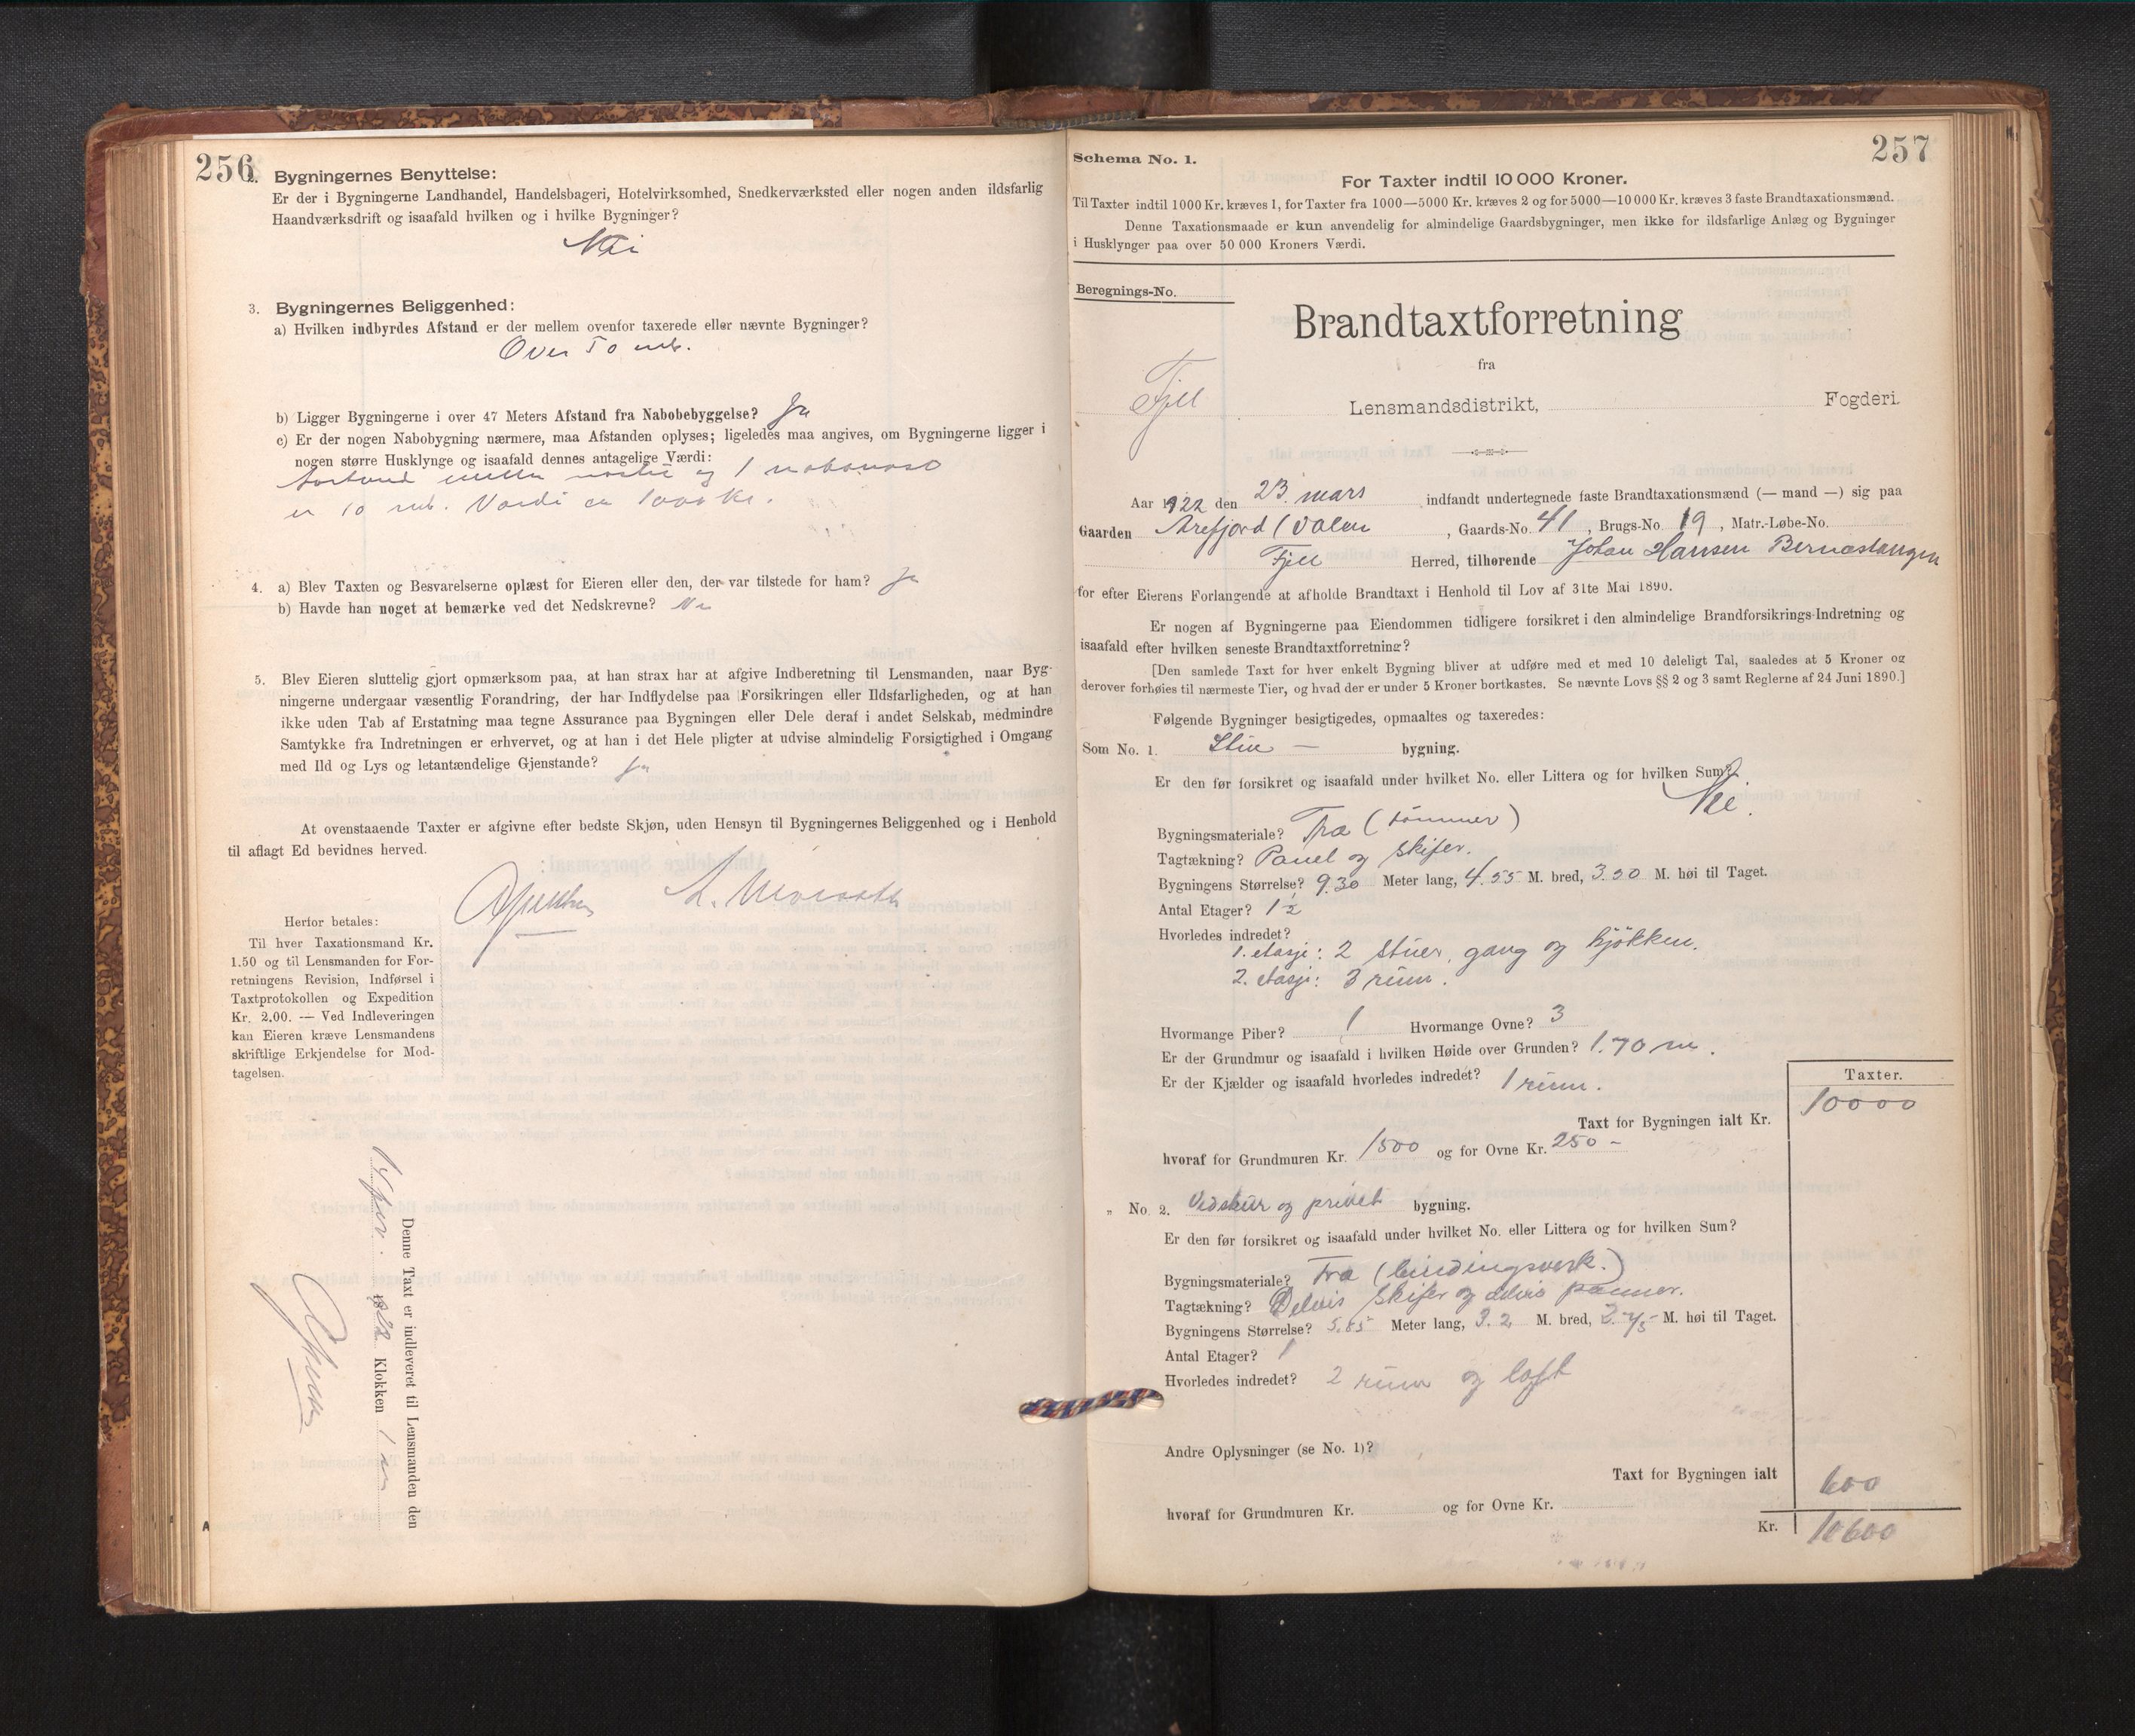 256
2. Bygningernes Benyttelse:
Er der i Bygningerne Landhandel, Handelsbageri, Hotelvirksomhed, Snedkerværksted eller nogen anden ildsfarlig
Haandværksdrift og isaafald hvilken og i hvilke Bygninger?
Nei
3. Bygningernes Beliggenhed:
a) Hvilken indbyrdes Afstand er der mellem ovenfor taxerede eller nævnte Bygninger?
Over 50 mtr.
b) Ligger Bygningerne i over 47 Meters Afstand fra Nabobebyggelse? Ja
c) Er der nogen Nabobygning nærmere, maa Afstanden oplyses; ligeledes maa angives, om Bygningerne ligger i
nogen større Husklynge og isaafald dennes antagelige Værdi:
og 1 nabonaust
er 10 mtr. Værdi ca 1000 kr.
4. a) Blev Taxten og Besvarelserne oplæst for Eieren eller den, der var tilstede for ham? Ja
b) Havde han noget at bemærke ved det Nedskrevne? Nei
5. Blev Eieren sluttelig gjort opmærksom paa, at han strax har at afgive Indberetning til Lensmanden, naar Byg-
ningerne undergaar væsentlig Forandring, der har Indflydelse paa Forsikringen eller Ildsfarligheden, og at han
ikke uden Tab af Erstatning maa tegne Assurance paa Bygningen eller Dele deraf i andet Selskab, medmindre
Samtykke fra Indretningen er erhvervet, og at han i det Hele pligter at udvise almindelig Forsigtighed i Omgang
med Ild og Lys og letantændelige Gjenstande? Ja
At ovenstaaende Taxter er afgivne efter bedste Skjøn, uden Hensyn til Bygningernes Beliggenhed og i Henhold
til aflagt Ed bevidnes herved.
Herfor betales:
Til hver Taxationsmand Kr.
1.50 og til Lensmanden for For-
retningens Revision, Indførsel i
Taxtprotokollen og Expedition
Kr. 2.00. — Ved Indleveringen
kan Eieren kræve Lensmandens
skriftlige Erkjendelse for Mod-
tagelsen.
Denne Taxt er indleveret til Lensmanden den
1922 Klokken 1
257
Schema No. 1.
For Taxter indtil 10 000 Kroner.
Til Taxter indtil 1000 Kr. kræves 1, for Taxter fra 1000—5000 Kr. kræves 2 og for 5000—10000 Kr. kræves 3 faste Brandtaxationsmænd.
Denne Taxationsmaade er kun anvendelig for almindelige Gaardsbygninger, men ikke for ildsfarlige Anlæg og Bygninger
i Husklynger paa over 50 000 Kroners Værdi.
Beregnings-No.
Brandtaxtforretning
fra
Fjell Lensmandsdistrikt, Fogderi.
Aar 1922 den 23. mars indfandt undertegnede faste Brandtaxationsmænd (— mand —) sig paa
Gaarden Arefjord (Valen, Gaards-No. 41, Brugs-No. 19, Matr.-Løbe-No.
Fjell Herred, tilhørende Johan Hansen Bernastangen
for efter Eierens Forlangende at afholde Brandtaxt i Henhold til Lov af 31te Mai 1890.
Er nogen af Bygningerne paa Eiendommen tidligere forsikret i den almindelige Brandforsikrings-Indretning og
isaafald efter hvilken seneste Brandtaxtforretning?
[Den samlede Taxt for hver enkelt Bygning bliver at udføre med et med 10 deleligt Tal, saaledes at 5 Kroner og
derover forhøies til nærmeste Tier, og hvad der er under 5 Kroner bortkastes. Se nævnte Lovs §§ 2 og 3 samt Reglerne af 24 Juni 1890.]
Følgende Bygninger besigtigedes, opmaaltes og taxeredes:
Som No. 1. Stue — bygning.
Er den før forsikret og isaafald under hvilket No. eller Littera og for hvilken Sum?
Nei.
Bygningsmateriale? Træ (tømmer)
Tagtækning? Panel og skifer.
Bygningens Størrelse? 9.30 Meter lang, 4.55 M. bred, 3.50 M. høi til Taget.
Antal Etager? 1½
Hvorledes indredet?
1. etasje: 2 stuer, gang og kjökken.
2. etasje: 3 rum.
Hvormange Piber? 1 Hvormange Ovne? 3
Er der Grundmur og isaafald i hvilken Høide over Grunden? 1.70 m.
Er der Kjælder og isaafald hvorledes indredet? 1 rum.
Taxter.
Taxt for Bygningen ialt Kr. 10000
hvoraf for Grundmuren Kr. 1500 og for Ovne Kr. 250 –
„ No. 2. Vedskur og privet bygning.
Er den før forsikret og isaafald under hvilket No. eller Littera og for hvilken Sum?
Bygningsmateriale? Træ (bindingsverk.)
Tagtækning? Delvis skifer og delvis panner.
Bygningens Størrelse? 5.85 Meter lang, 3.2 M. bred, 2.75 M. høi til Taget.
Antal Etager? 1
Hvorledes indredet? 2 rum og loft
Andre Oplysninger (se No. 1)?
Taxt for Bygningen ialt 600
hvoraf for Grundmuren Kr. og for Ovne Kr.
Kr. 10600